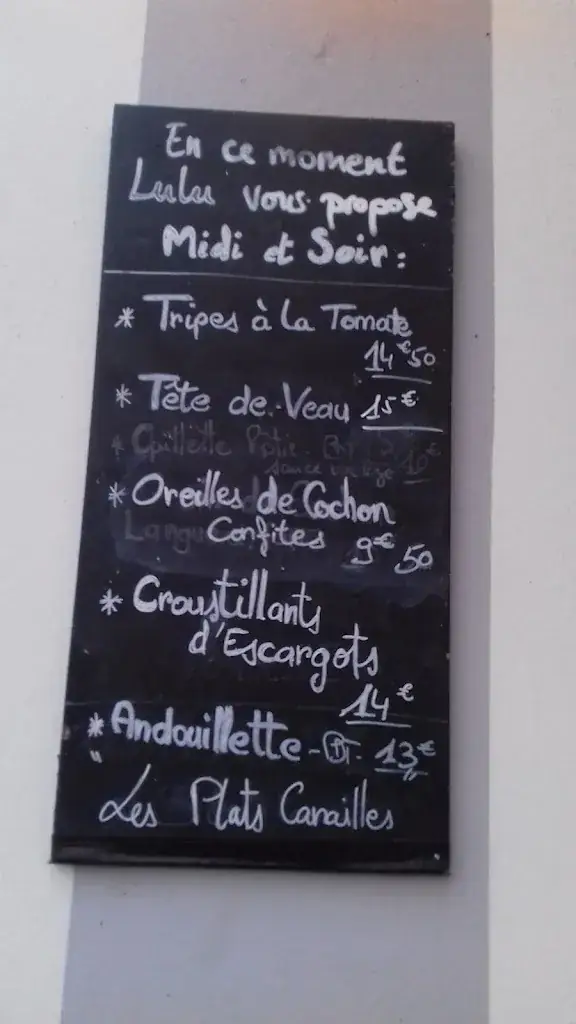 En ce moment
Lulu vous propose
Midi et Soir :
* Tripes à la Tomate
14€50
* Tête de Veau 15€
sauce
* Oreilles de Cochon
Langu
Confites 9€50
* Croustillants
d'Escargots
14€
* Andouillette - - 13€
" Les Plats Canailles "